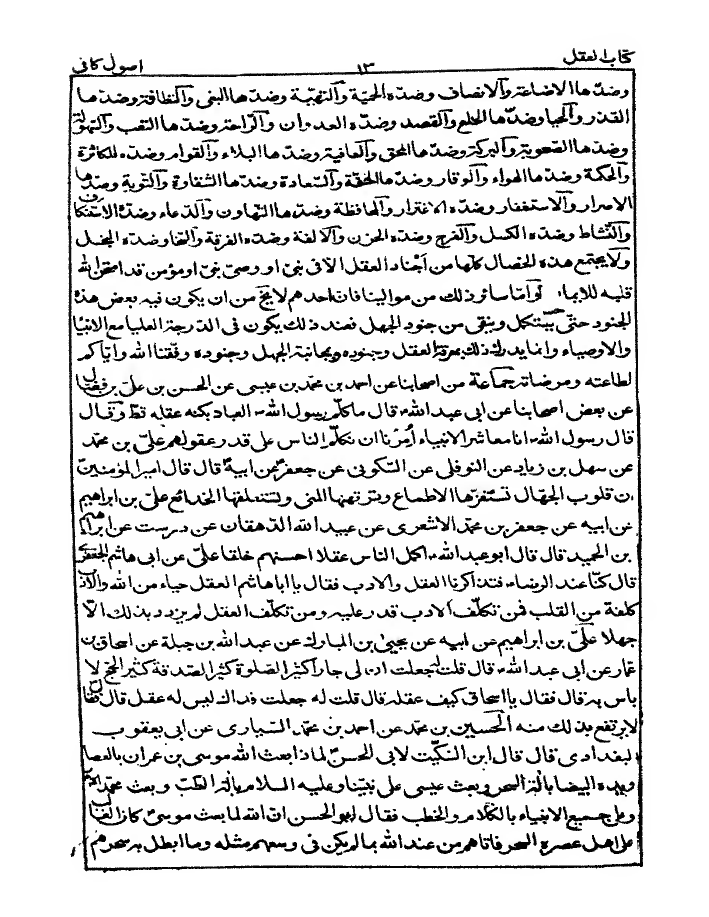 كتاب العقل ١٣ اصول كافى
وضدّها الاضاعة والانصاف وضدّه الحميّة والتهيّة وضدّها البغى والنظافة وضدّها
القذر والحيا وضدّها الخلع والقصد وضدّه العدوان والراحة وضدّها التعب والسّهولة
وضدّها الصّعوبة والبركة وضدّها المحق والعافية وضدّها البلاء والقوام وضدّه المكاثرة
والحكمة وضدّها الهواء والوقار وضدّها الخفّة والسّعادة وضدّها الشقاوة والتوبة وضدّها
الاصرار والاستغفار وضدّه الاغترار والمحافظة وضدّها التّهاون والدّعاء وضدّه الاستنكاف
والنّشاط وضدّه الكسل والفرح وضدّه الحزن والالفة وضدّه الفرقة والسّخا وضدّه البخل
ولا يجتمع هذه الخصال كلّها من اجناد العقل الّا فى نبىّ او وصىّ نبىّ او مؤمن قد امتحن الله
قلبه للايمان وامّا سائر ذلك من موالينا فان احدهم لا يخ من ان يكون فيه بعض هذه
الجنود حتّى يستكمل وينقى من جنود الجهل فعند ذلك يكون فى الدّرجة العليا مع الانبيا
والاوصياء وانما يدرك ذلك بمعرفة العقل وجنوده ومجانبة الجهل وجنوده وفّقنا الله وايّاكم
لطاعته ومرضاته جماعة من اصحابنا عن احمد بن محمّد بن عيسى عن الحسن بن علىّ بن فضّال
عن بعض اصحابنا عن ابى عبد الله ع قال ما كلّم رسول الله ص العباد بكنه عقله قطّ وقال
قال رسول الله ص انا معاشر الانبياء اُمرنا ان نكلّم النّاس على قدر عقولهم علىّ بن محمّد
عن سهل بن زياد عن النوفلى عن السّكونى عن جعفر عن ابيه قال قال امير المؤمنين
ان قلوب الجهّال تستفزّها الاطماع وترتهنها المنى وتستعلقها الخدائع علىّ بن ابراهيم
عن ابيه عن جعفر بن محمّد الاشعرى عن عبيد الله الدّهقان عن درست عن ابراهيم
بن عبد الحميد قال قال ابو عبد الله ع اكمل الناس عقلا احسنهم خلقا علىّ عن ابى هاشم الجعفرى
قال كنّا عند الرضا ع فتذاكرنا العقل والادب فقال يا ابا هاشم العقل حباء من الله والادب
كلفة من القلب فمن تكلّف الادب قدر عليه ومن تكلّف العقل لم يزدد بذلك الّا
جهلا علىّ بن ابراهيم عن ابيه عن يحيى بن المبارك عن عبد الله بن جبلة عن اسحاق بن
عمّار عن ابى عبد الله ع قال قلت له جعلت فداك انّ لى جارا كثير الصّلوة كثير الصّدقة كثير الحجّ لا
باس به قال فقال يا اسحاق كيف عقله قال قلت له جعلت فداك ليس له عقل قال فقال
لا يرتفع بذلك منه الحسين بن محمّد عن احمد بن محمّد السّيارى عن ابى يعقوب
البغدادى قال قال ابن السّكّيت لابى الحسن ع لماذا بعث الله موسى بن عمران بالعصا
ويده البيضا بآلة السحر وبعث عيسى على نبيّنا وعليه السلام بآلة الطّبّ وبعث محمّدا
وعلى جميع الانبياء بالكلام والخطب فقال ابو الحسن انّ الله لمّا بعث موسى كان الغالب
على اهل عصره السحر فاتاهم من عند الله بما لم يكن فى وسعهم مثله وما ابطل به سحرهم